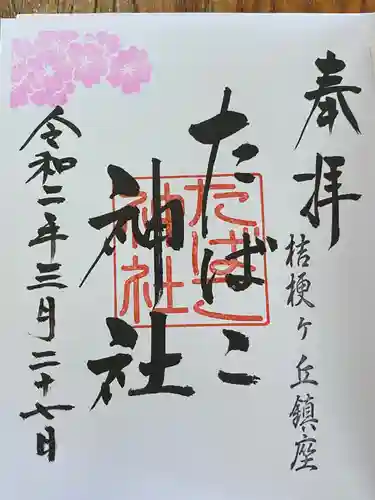 奉拝
桔梗ヶ丘鎮座
たばこ
神社
たばこ
神社
令和二年三月二十七日